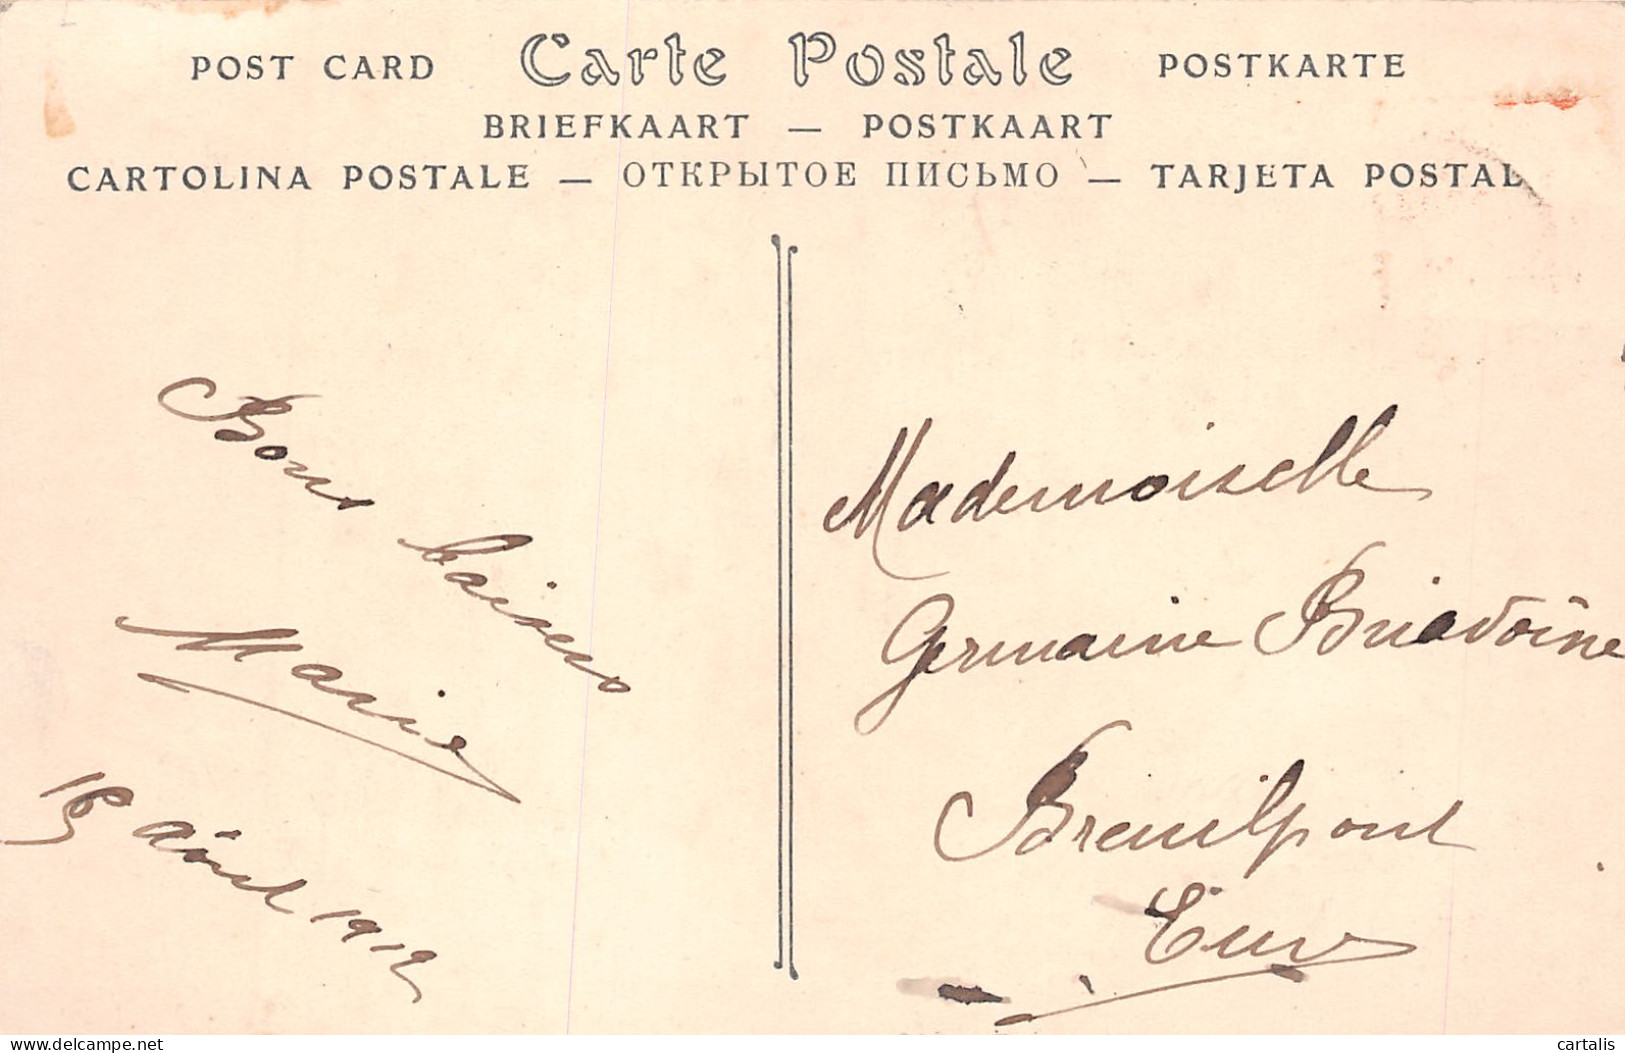 POST CARD Carte Postale POSTKARTE
BRIEFKAART — POSTKAART
CARTOLINA POSTALE — ОТКРЫТОЕ ПИСЬМО — TARJETA POSTAL
Bons baisers
Marie
15 août 1912
Mademoiselle
Germaine
Breuilpont
Eure
delcampe.net
cartalis